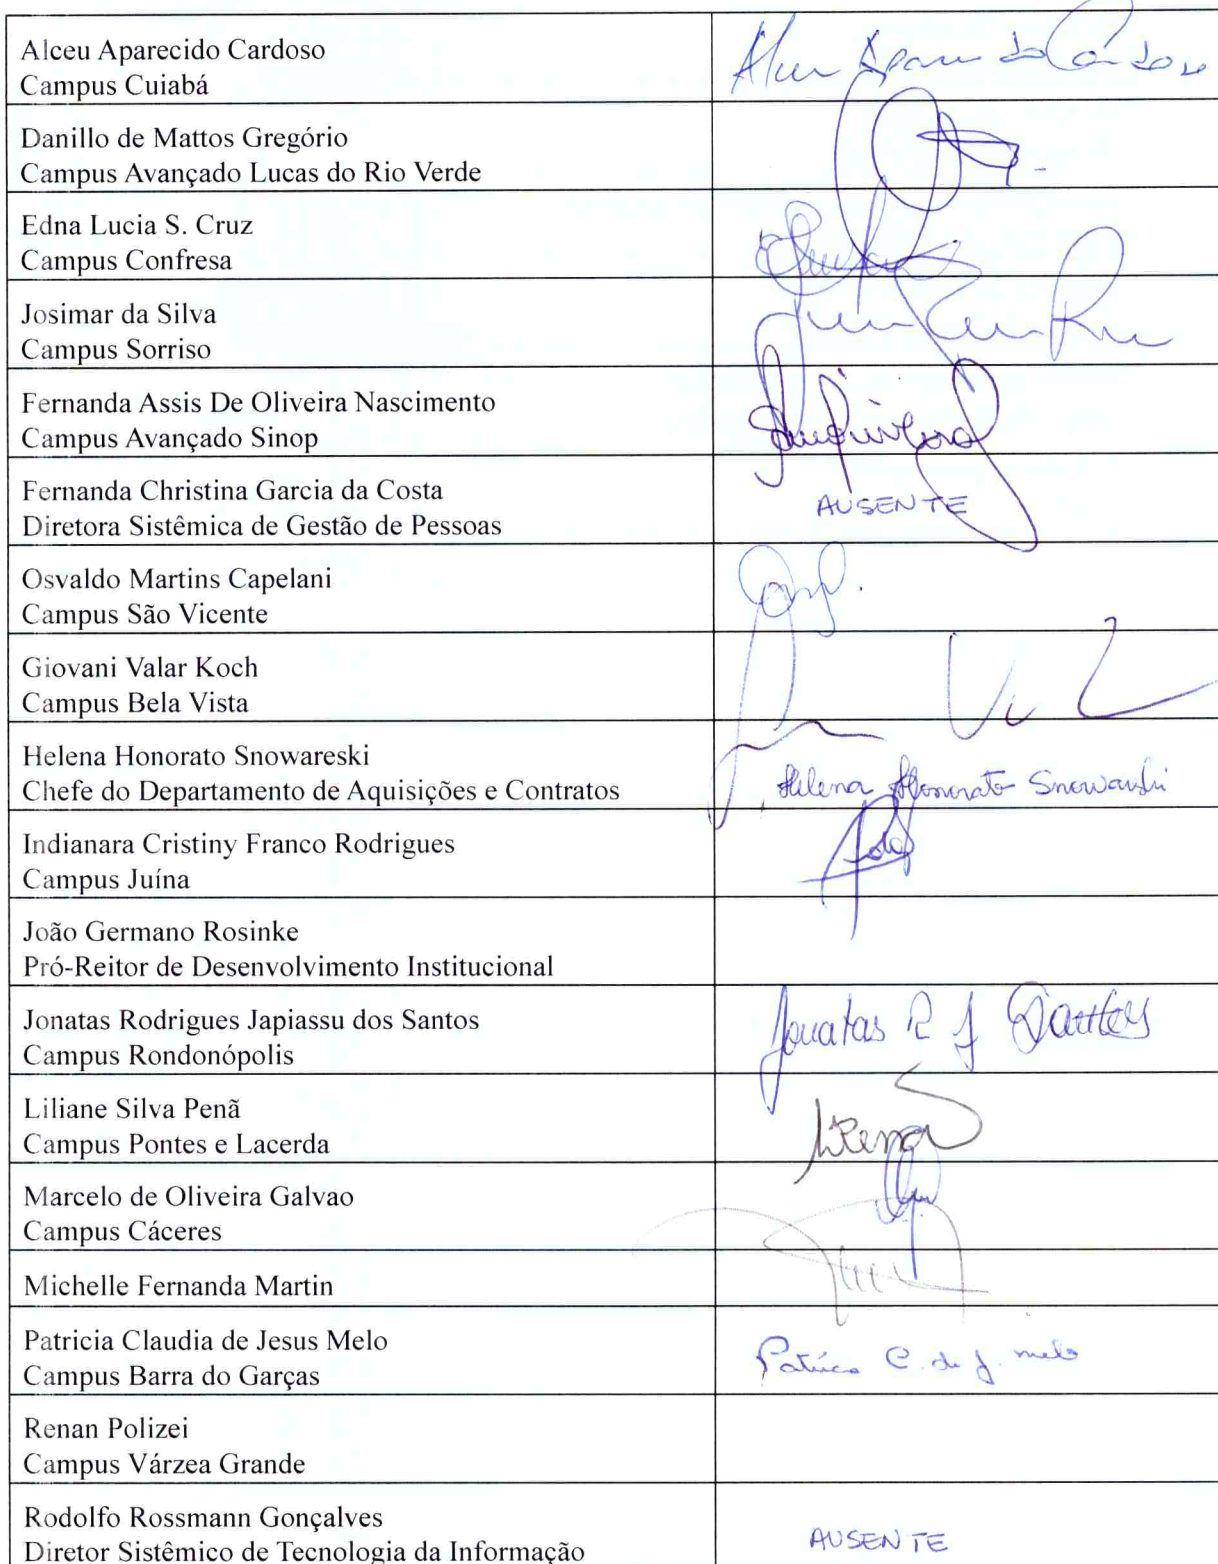 Alceu Aparecido Cardoso
Campus Cuiabá
Alceu Aparecido Cardoso
Danillo de Mattos Gregório
Campus Avançado Lucas do Rio Verde
Edna Lucia S. Cruz
Campus Confresa
Josimar da Silva
Campus Sorriso
Fernanda Assis De Oliveira Nascimento
Campus Avançado Sinop
Fernanda Christina Garcia da Costa
Diretora Sistêmica de Gestão de Pessoas
AUSENTE
Osvaldo Martins Capelani
Campus São Vicente
Giovani Valar Koch
Campus Bela Vista
Helena Honorato Snowareski
Chefe do Departamento de Aquisições e Contratos
Helena Honorato Snowareski
Indianara Cristiny Franco Rodrigues
Campus Juína
João Germano Rosinke
Pró-Reitor de Desenvolvimento Institucional
Jonatas Rodrigues Japiassu dos Santos
Campus Rondonópolis
Jonatas R J Santos
Liliane Silva Penã
Campus Pontes e Lacerda
Marcelo de Oliveira Galvao
Campus Cáceres
Michelle Fernanda Martin
Patricia Claudia de Jesus Melo
Campus Barra do Garças
Patrícia C. de J. melo
Renan Polizei
Campus Várzea Grande
Rodolfo Rossmann Gonçalves
Diretor Sistêmico de Tecnologia da Informação
AUSENTE